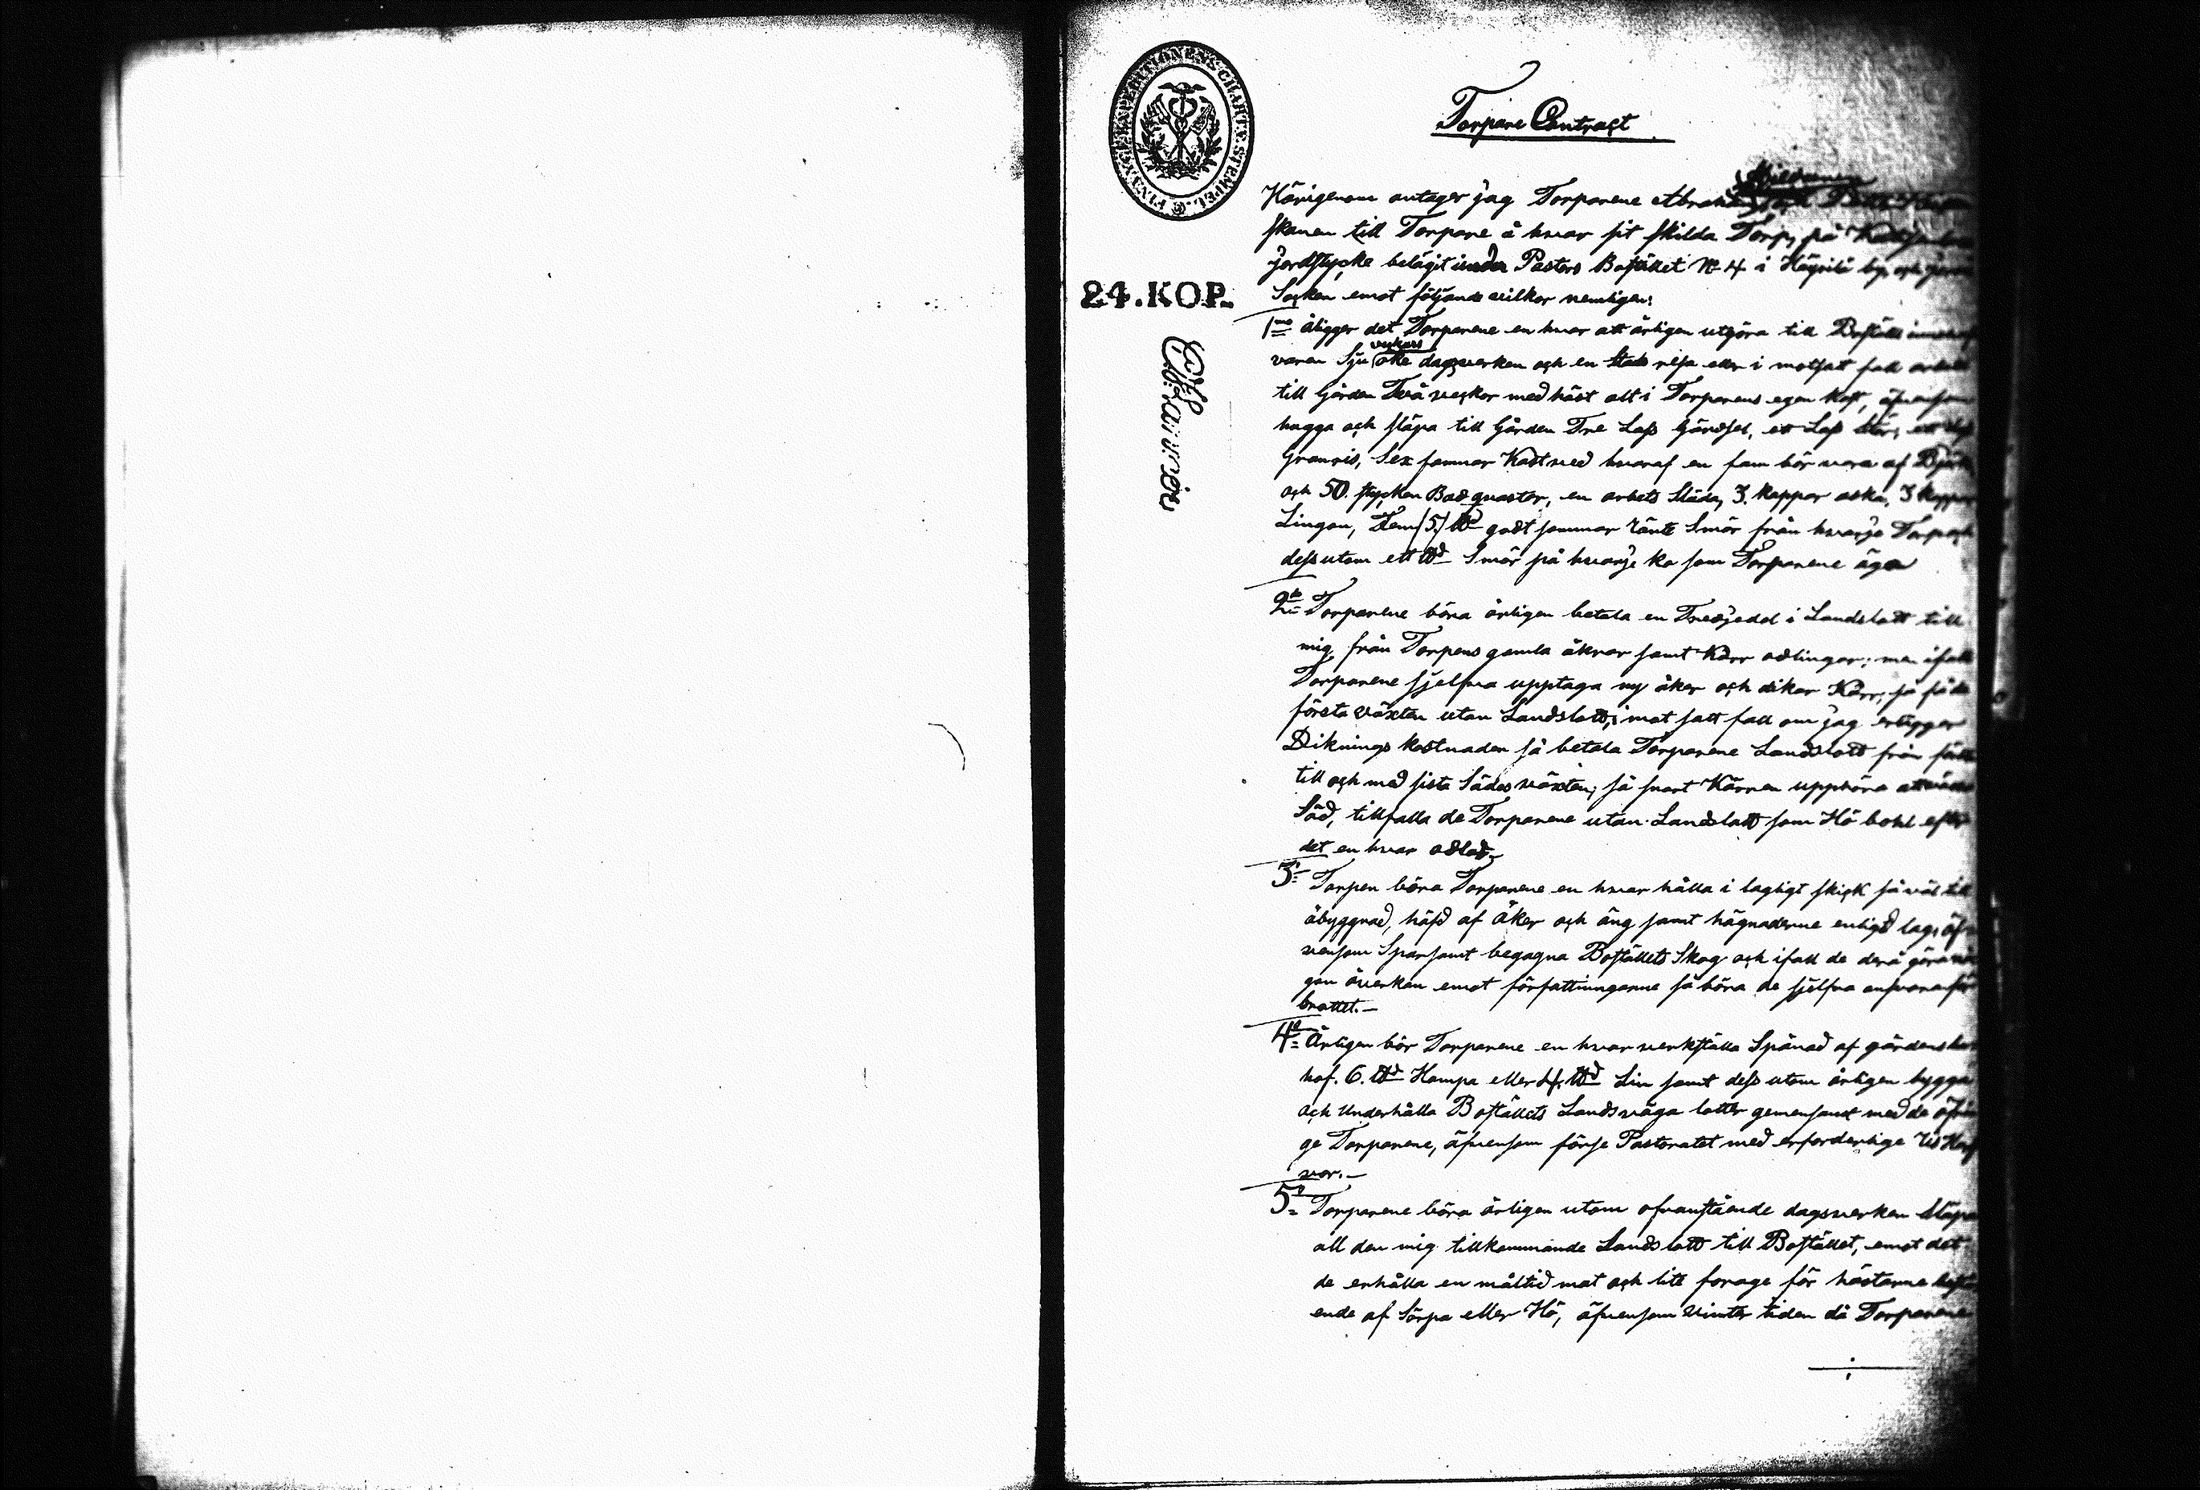 Torpare Contract
FINANCE EXPEDITIONENS CHARTÆ STEMPEL.
24. KOP.
Härigenom antager jag Torparene
skanen till Torpare å hvar sit skilda Torp, på
jordstycke belägit under Pastors Bostället N 4 i by och
Socken emot följande vilkor nemligen:
1mo åligger det Torparene en hvar att årligen utgöra till Boställs
varen Sju veckors öke dagsverken och en Stads resa eller i motsatt fall
till Gården Två veckor med häst alt i Torparens egen kost, äfvensom
hugga och släpa till Gården Tre Lass Gärdsel, ett Lass Stör, ett Lass
Granris, Sex famnar Kastved hvaraf en fam bör vara af Björk
och 50. stycken Bad quastar, en arbets Släda, 3. kappar aska, 3 kappar
Lingon, Fem /5./ ℔d godt sommar ränte Smör från hvarje Torp och
dessutom ett ℔d Smör på hvarje ko som Torparene äga
2do Torparene böra årligen betala en Tredjedel i Landslott till
mig från Torpens gamla åkrar samt Kärr odlingar; men ifall
Torparene sjelfva upptaga ny åker och dikar Kärr, så få de
första växten utan Landslott, i mot satt fall om jag erlägger
Diknings kostnaden så betala Torparene Landslott från
till och med sista Sädes växten; så snart Kärren upphöra att
Säd, tillfalla de Torparene utan Landslott som Hö bohl efter
det en hvar odlad.
3o Torpen böra Torparene en hvar hålla i lagligt skick så väl till
åbyggnad, häfd af Åker och äng samt hägnaderne enligt lag, äf
vensom Sparsamt begagna Boställets Skog och ifall de derå göra nå
gon åverkan emot författningarne så böra de sjelfva ansvara för
brottet.
4o Årligen bör Torparene en hvar verkställa Spånad af gårdens
haf. 6. ℔d Hampa eller 4. ℔d Lin samt dess utom årligen bygga
och Underhålla Boställets Landsväga lotter gemensamt med de öfri
ge Torparene, äfvensom förse Pastoratet med erforderlige ris
var.
5o Torparene böra årligen utom ofvanstående dagsverken släpa
all den mig tillkommande Landslott till Bostället, emot det
de erhålla en måltid mat och lite forage för hästarne bestå
ende af Sörpa eller Hö, äfvensom Vinter tiden då Torparene